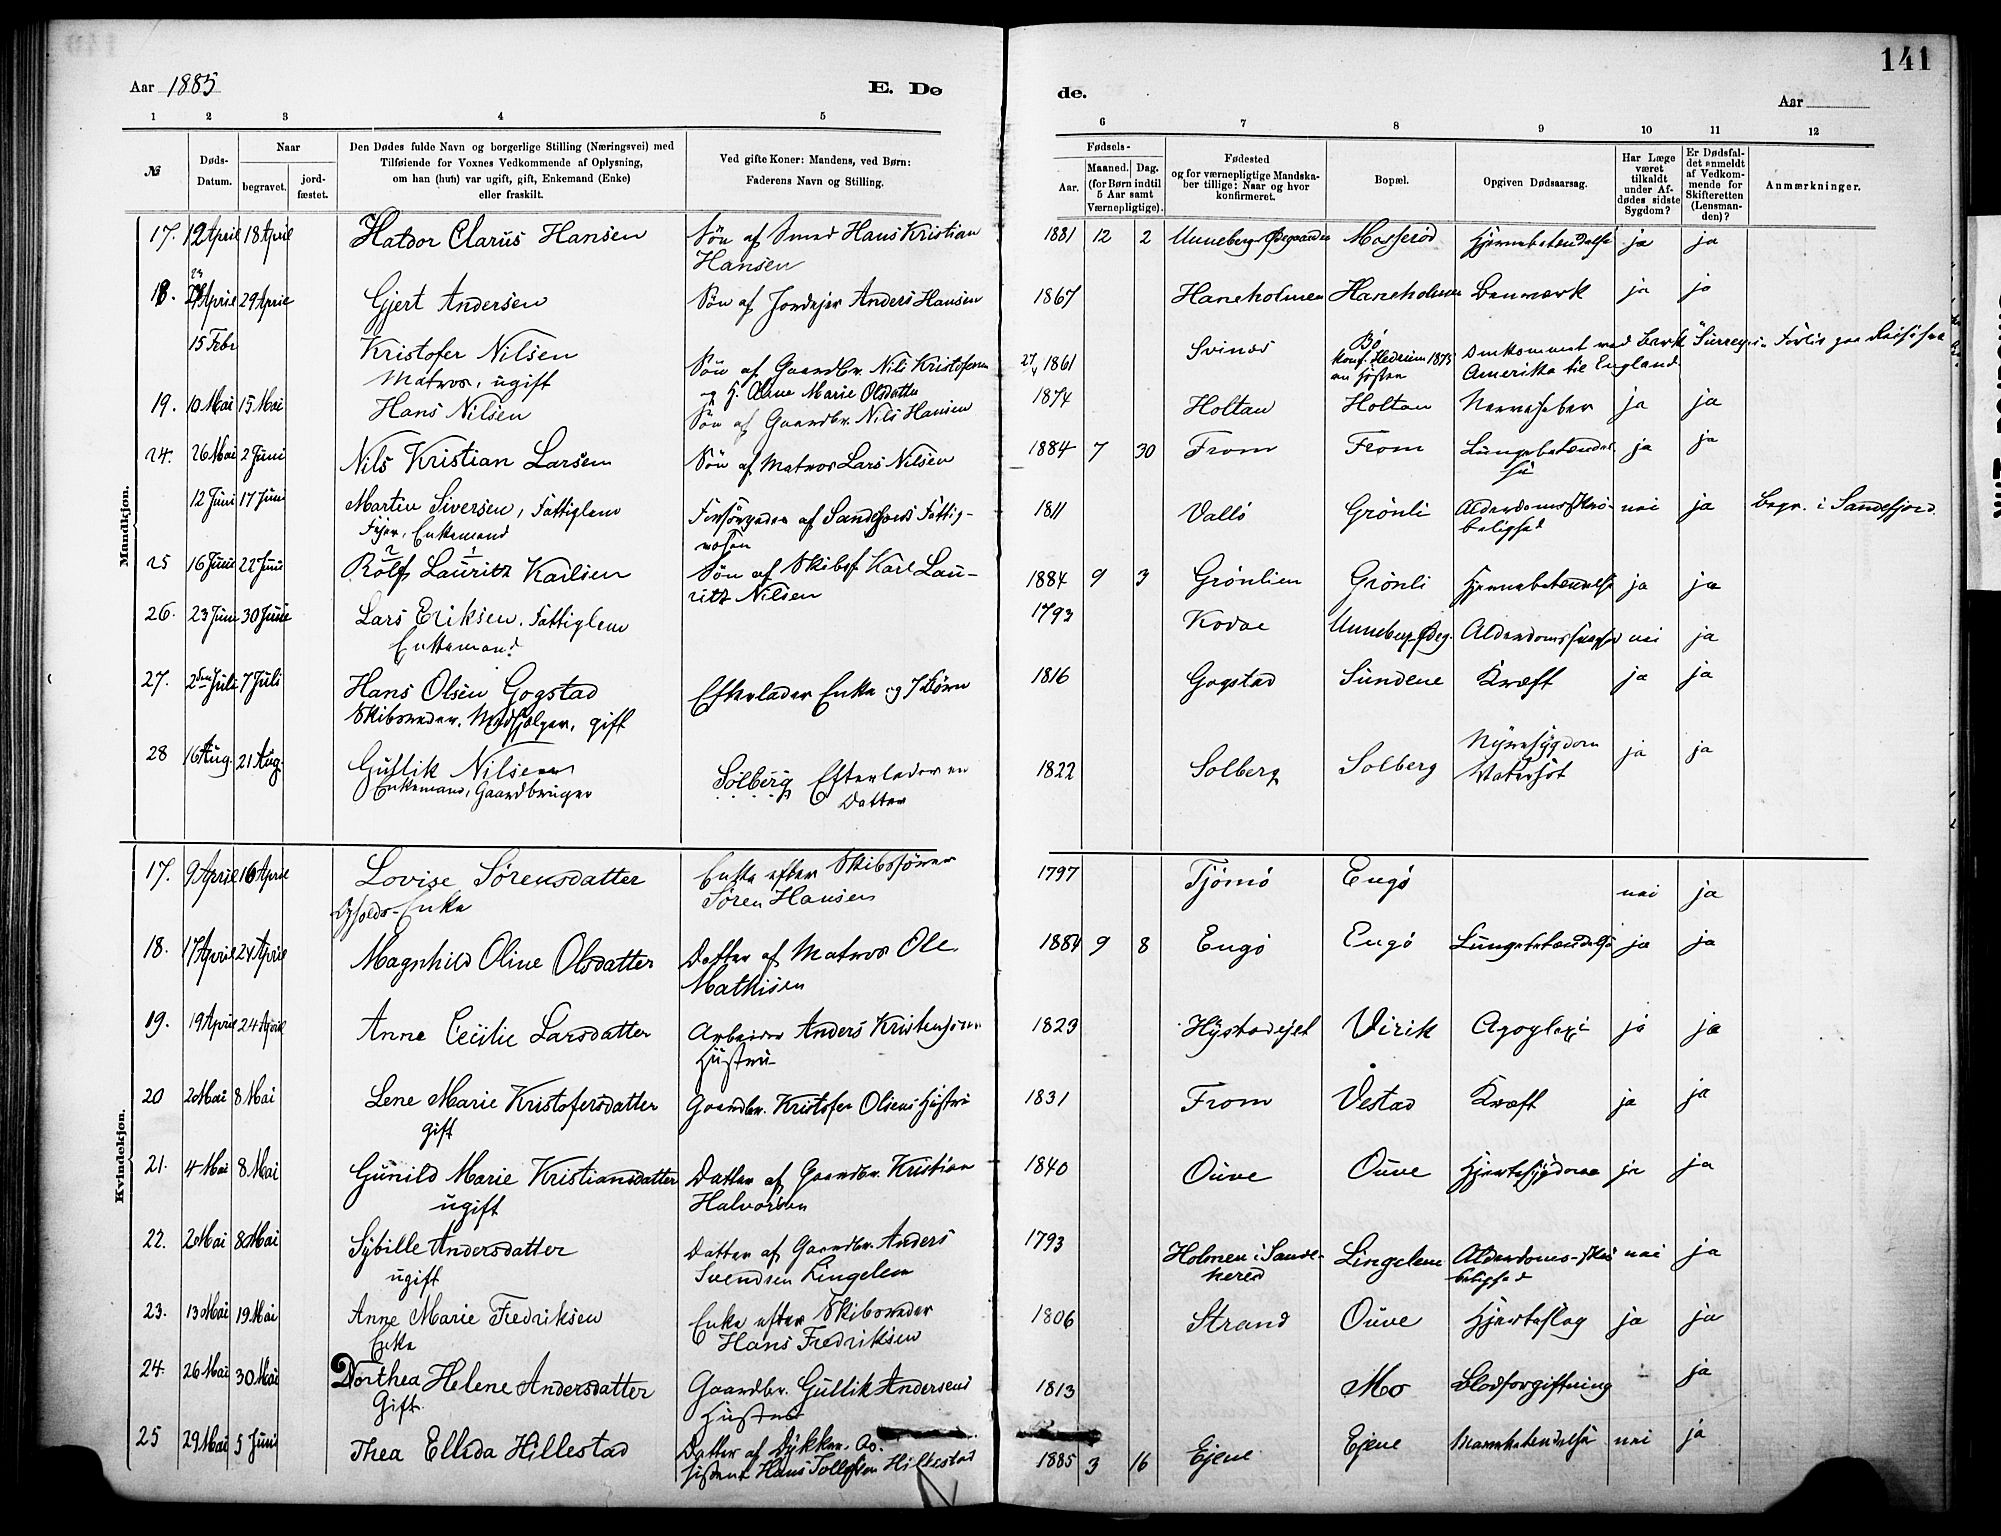 141
Aar 1885
E. Dø
de.
Aar
1 2 3 4 5 6 7 8 9 10 11 12
№
Døds-Datum.
Naar
begravet.
jord-fæstet.
Den Dødes fulde Navn og borgerlige Stilling (Næringsvei) med
Tilføiende for Voxnes Vedkommende af Oplysning,
om han (hun) var ugift, gift, Enkemand (Enke)
eller fraskilt.
Ved gifte Koner: Mandens, ved Børn:
Faderens Navn og Stilling.
Fødsels-
Aar.
Maaned. Dag.
(for Børn indtil
5 Aar samt
Værnepligtige).
Fødested
og for værnepligtige Mandska-
ber tillige: Naar og hvor
konfirmeret.
Bopæl.
Opgiven Dødsaarsag.
Har Læge
været
tilkaldt
under Af-
dødes sidste
Sygdom?
Er Dødsfal-
det anmeldt
af Vedkom-
mende for
Skifteretten
(Lensman-
den)?
Anmærkninger.
Mandkjøn.
17. 12 April 18 April Haldor Clarus Hansen Søn af Smed Hans Kristian 1881 12 2 Unneberg Ødegaarden Mosserød Hjernebetændelse ja ja
Hansen
18. April 29 April Gjert Andersen Søn af Jordejer Anders Hansen 1867 Haneholmen Haneholmen Benmærk ja ja
15 Febr Kristofer Nilsen Søn af Gaardbr. Nils Kristofersen 27/4 1861 Svinøs Bø Omkommet med Bark "Surrey" Forlis paa Reise fra
Matros, ugift og H. Anne Marie Olsdatter Konf. Hedrum 1875 Amerika til England
19. 10 Mai 15 Mai Hans Nilsen Søn af Gaardbr. Nils Hansen 1874 Holtan Holtan Nervefeber ja ja
24. 26 Mai 2 Juni Nils Kristian Larsen Søn af Matros Lars Nilsen 1884 7 30 From From Lungebetændelse ja ja
12 Juni 17 Juni Martin Siversen, Fattiglem Forsørgedes af Sandefjords Fattig- 1811 Vallø Grönli Alderdomsskrø- nei ja Begr. i Sandefjord
Enkemand væsen belighed
25 16 Juni 22 Juni Rolf Lauritz Karlsen Søn af Skibsf. Karl Lau- 1884 9 3 Grönlien Grönli Hjernebetændelse ja ja
ritz Nilsen
26. 23 Juni 30 Juni Lars Eriksen. Fattiglem 1793 Kodal Unneberg Ødeg. Alderdomssvaghed nei ja
Enkemand
27. 2den Juli 7 Juli Hans Olsen Gogstad Efterlader Enke og 7 Børn 1816 Gogstad Sundene Kræft ja ja
Skibsreder, Medhjælper, gift
28 16 Aug. 21 Aug. Gullik Nilsen Solberg Efterlader en 1822 Solberg Solberg Nyresygdom ja ja
Enkemand, Gaardbruger Datter Vatersot
Kvindekjøn.
17. 9 April 16 April Lovise Sørensdatter Enke efter Skibsfører 1797 Tjømø Engø nei ja
Opholds-Enke Søren Hansen
18. 17 April 24 April Magnhild Oline Olsdatter Datter af Matros Ole 1884 9 8 Engø Engø Lungebetændelse ja ja
Mathisen
19. 19 April 24 April Anne Cecilie Larsdatter Arbeider Anders Kristensens 1823 Hystadejet Virik Apoplexi ja ja
Hustru
20 2 Mai 8 Mai Lene Marie Kristofersdatter Gaardbr. Kristofer Olsens Hustru 1831 From Vestad Kræft ja ja
gift
21. 4 Mai 8 Mai Gunild Marie Kristiansdatter Datter af Gaardbr. Kristian 1840 Ouve Ouve Hjertesygdom ja ja
ugift Halvorsen
22. 2 Mai 8 Mai Sybille Andersdatter Datter af Gaardbr. Anders 1793 Holmen i Sande- Lingelem Alderdoms-skrø nei ja
ugift Svendsen Lingelem hered belighed
23. 13 Mai 19 Mai Anne Marie Fredriksen Enke efter Skibsreder 1806 Strand Ouve Hjerteslag ja ja
Enke Hans Fredriksen
24. 26 Mai 30 Mai Dorthea Helene Andersdatter Gaardbr. Gullik Andersens 1813 Mo Blodforgiftning ja
Gift. Hustru
25 29 Mai 5 Juni Thea Elleda Hillestad Datter af Dykker. As- 1885 3 16 Ejene Ejene Mavebetændelse nei ja
sistent Hans Tollefsen Hillestad